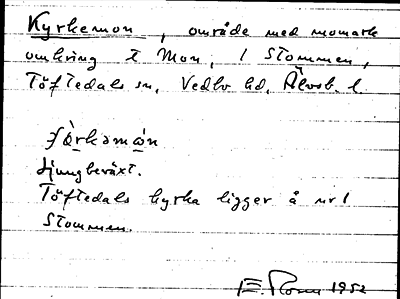 Kyrkemon, område med momark
omkring t Mon, 1 Stommen,
Töftedals sn, Vedbo hd, Älvsb. l.
Ljungbeväxt.
Töftedals kyrka ligger å nr 1
Stommen.
1952